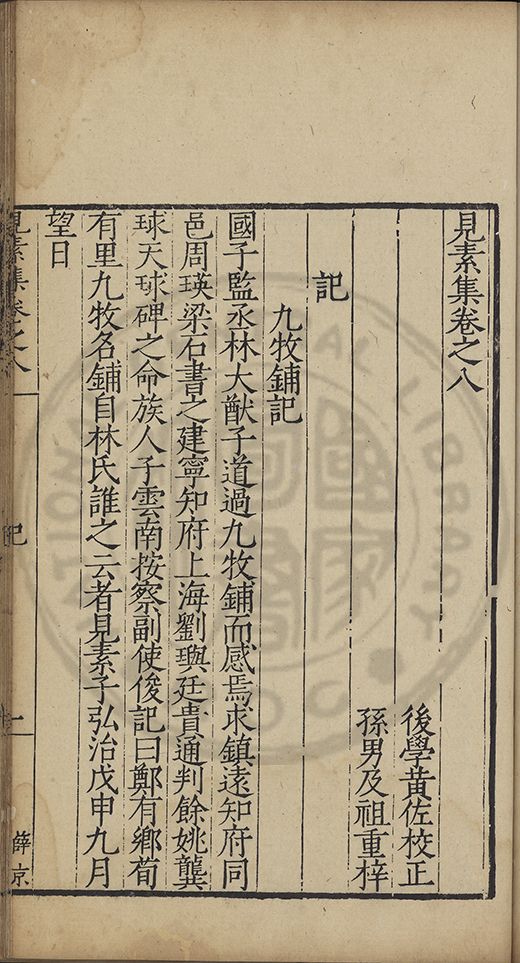 見素集卷之八
後學黃佐校正
孫男及祖重梓
記
九牧鋪記
國子監丞林大猷子道過九牧鋪而感焉求鎮遠知府同
邑周瑛梁石書之建寧知府上海劉璵廷貴通判餘姚龔
球天球碑之命族人子雲南按察副使俊記曰鄭有鄉荀
有里九牧名鋪自林氏誰之云者見素子弘治戊申九月
望日
見素集卷之八
記
一
薛京